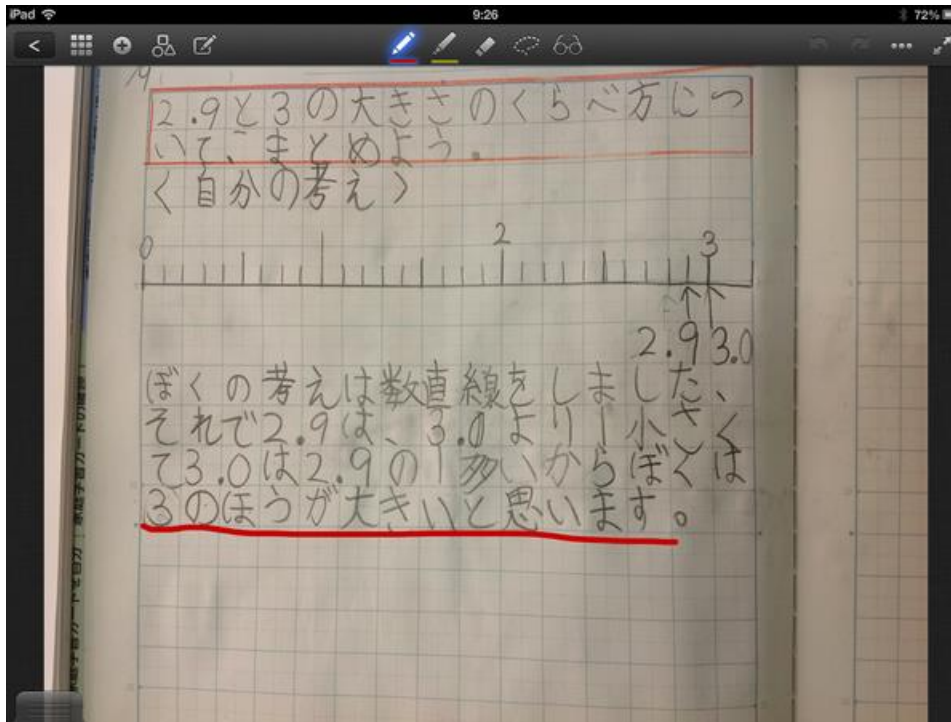 iPad 9:26 72%
19
2.9と3の大きさのくらべ方につ
いて、まとめよう。
〈自分の考え〉
0 2 3
2.9 3.0
ぼくの考えは数直線をしました、
それで2.9は、3.0より1小さく
て3.0は2.9の1多いからぼくは
3のほうが大きいと思います。